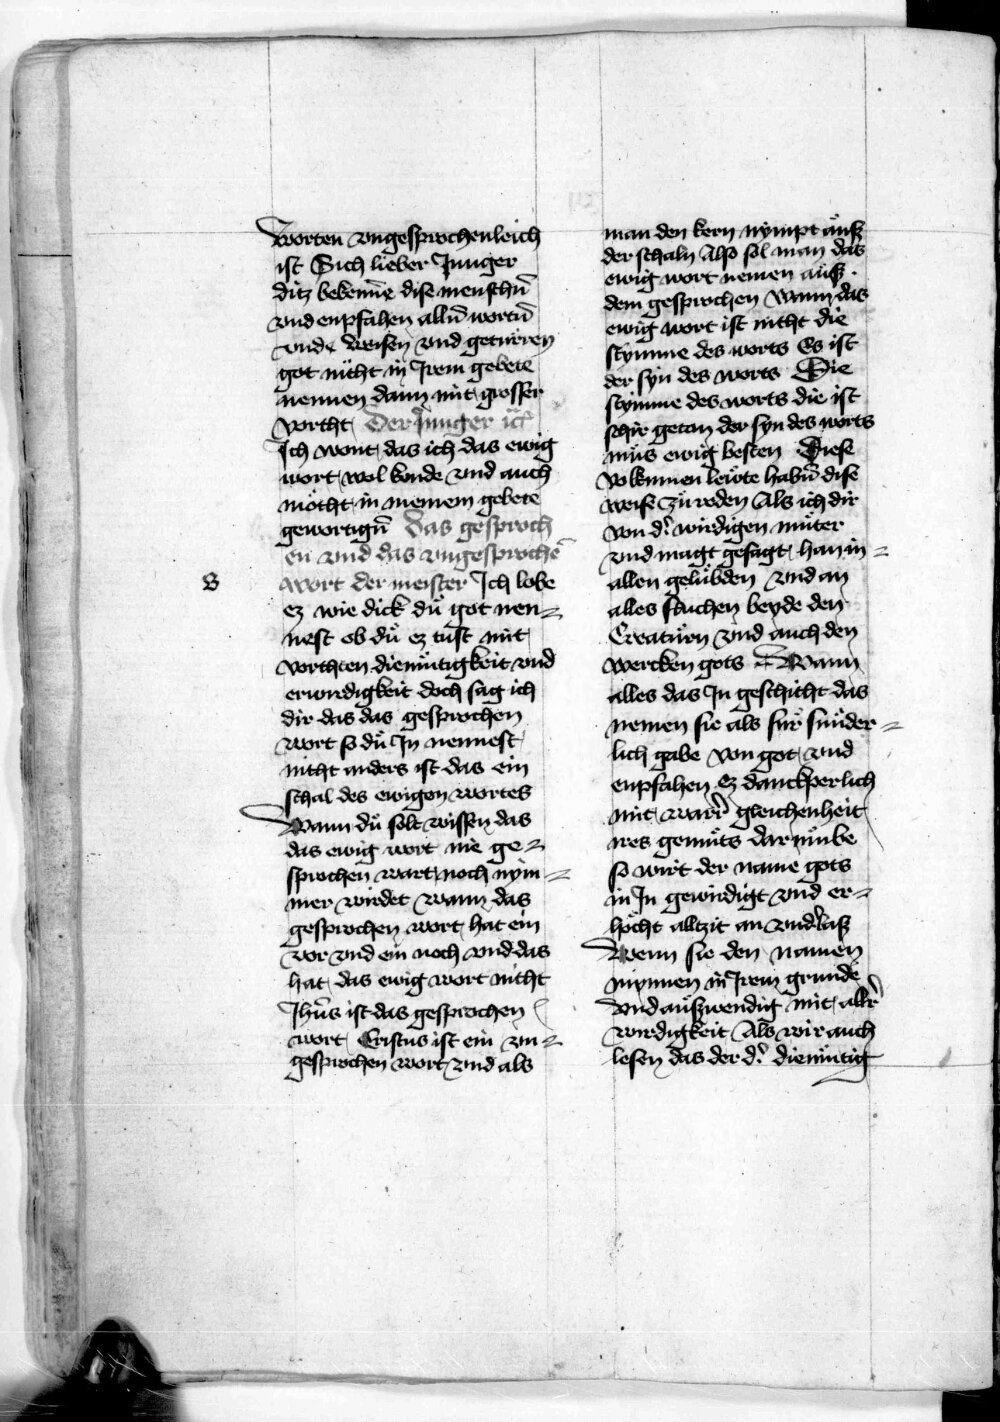 worten vngesprochenleich
ist Sich lieber Junger
ditz bekenne dise menschn̄
vnd enpfahen alln̄ wortn̄
vnd weisen vnd geturren
got nicht in Irem gebete
nennen dann mit grosser
vorcht Der Junger
Ich wont das ich das ewig
wort wol konde vnd auch
mocht in meinem gebete
gewortign̄ Das gesproch
en vnd das vngesprochē
wort der meister Ich lobe
B
ez wie dick du got nen-
nest ob du ez tust mit
vorchten diemütigkeit vnd
erwirdigkeit doch sag ich
dir das das gesprochen
wort so dü In nennest
nicht anders ist das ein
schal des ewigen wortes
Wann dü solt wissen das
das ewig wort nie ge-
sprochen wart noch nym-
mer wirdet wann das
gesprochen wort hat ein
vor vnd ein noch vnd das
hat das ewig wort nicht
Jhūs ist das gesprochen
wort Cristus ist ein vn-
gesprochen wort vnd als
man den kern nympt auß
der schaln Also sol man das
ewig wort nemen auß
dem gesprochen Wann das
ewig wort ist nicht die
stymme des worts Es ist
der syn des worts Die
stymme des worts die ist
schir getan der syn des worts
müs ewig besten Diese
volkumen lewte habn̄ dise
weise zu reden Als ich dir
von d' wirdigen müter
vnd magt gesagt han in-
allen gelübden vnd an
alles suchen beyde den
Creatürn vnd auch den
wercken gots Wann
alles das In geschicht das
nemen sie als für sunder-
lich gabe von got vnd
enpfahen ez danckperlich
mit warr' gleichenheit
ires gemüts dar vmbe
so wirt der name gots
in In gewirdigt vnd er-
höcht alltzit an vnd'laß
Wenn sie den namen
mynnen in Irem grunde
vnd außwendig mit all'r
wirdigkeit Als wir auch
lesen das der d' diemütig